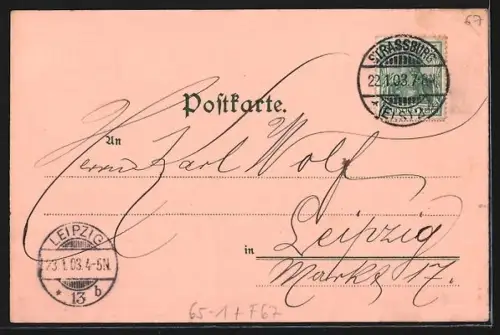 67
STRASSBURG
22.1.03.7-8N.
* (ELS) 2 *
Postkarte.
An
Herrn Karl Wolf
in Leipzig
Markt 17.
LEIPZIG
23.1.03.4-5N.
* 13 b
65-1 + F67